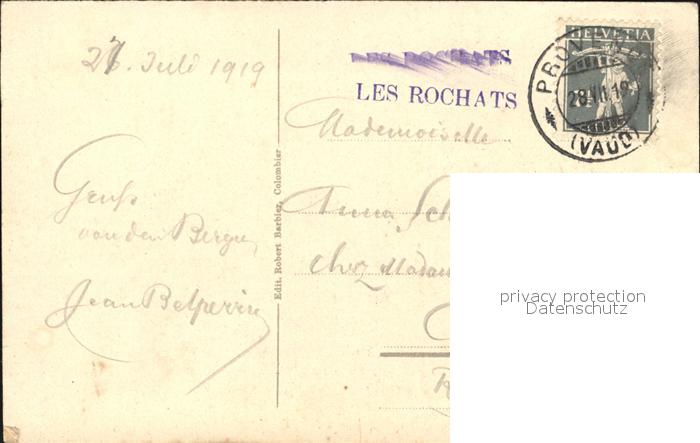 27. Juli 1919
Gruss
von den Bergen
Jean Belperrin
Edit. Robert Barbier, Colombier
LES ROCHATS
LES ROCHATS
HELVETIA
28.VII.19
(VAUD)
Mademoiselle
Anna Sch
chez Madam
privacy protection
Datenschutz